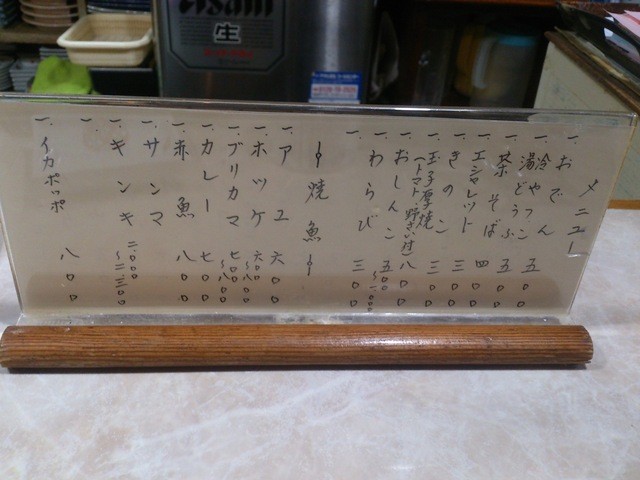 メニュー
一、おでん
一、冷やっこ
湯どうふ 五〇〇
一、茶そば 五〇〇
一、エシャレット 四〇〇
一、きのこ 三〇〇
一、玉子厚焼 三〇〇
(トマト・野さい付)
一、おしんこ 八〇〇
一、わらび 五〇〇〜一、〇〇〇
一、 三〇〇
〜焼魚〜
一、アユ 六〇〇
一、ホッケ 六〇〇〜八〇〇
一、ブリカマ 七〇〇〜八〇〇
一、カレー 七〇〇
一、赤魚 八〇〇
一、サンマ
一、キンキ 二、〇〇〇〜二、三〇〇
一、
一、イカポッポ 八〇〇
Asahi
生